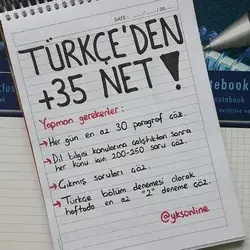 DATE: ..../..../20...
TÜRKÇE'DEN
+35 NET!
Yapman gerekenler:
→Her gün en az 30 paragraf çöz.
→Dil bilgisi konularına çalıştıktan sonra
her konu için 200-250 soru çöz.
→Çıkmış soruları çöz.
→Türkçe bölüm denemesi olarak
haftada en az "2" deneme çöz.
@yksonline
notebook